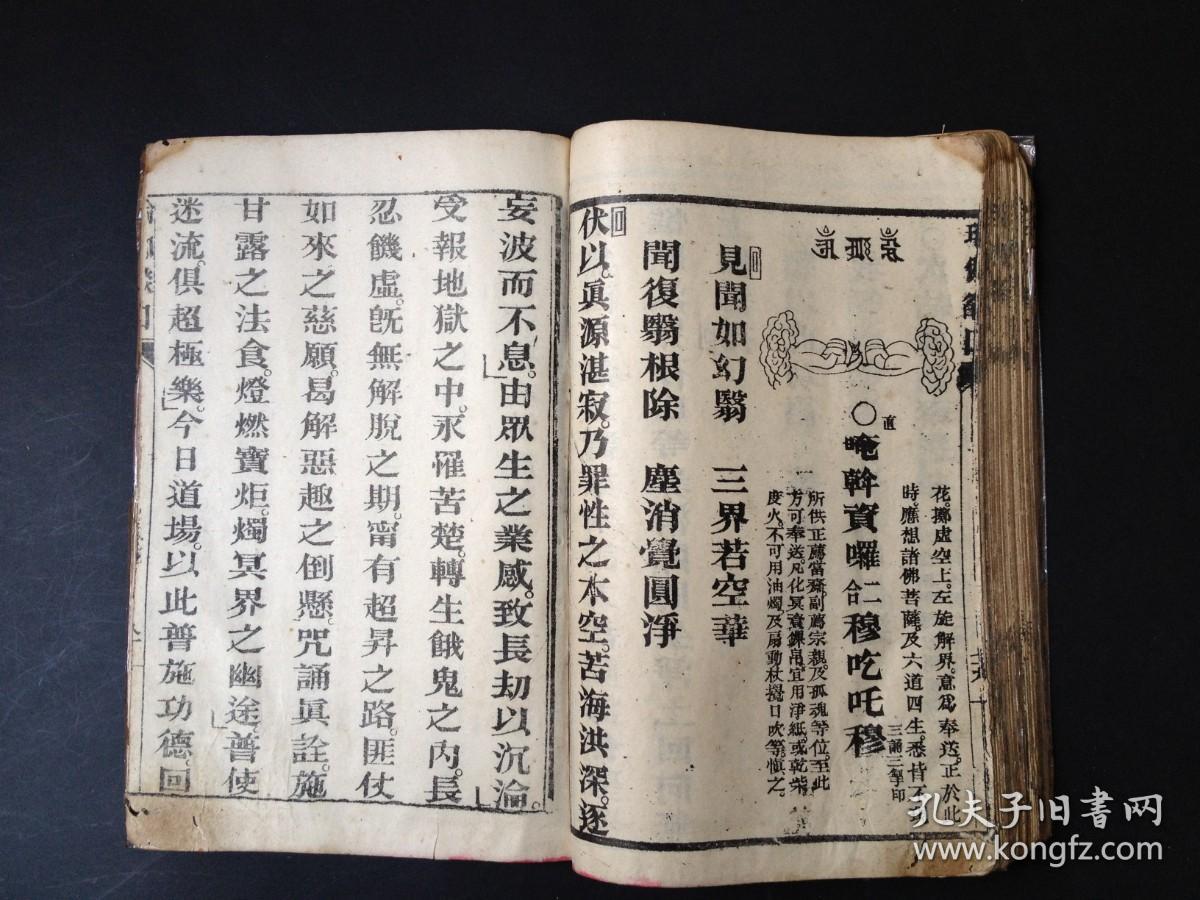 花。擲虛空上。左旋解界。意爲奉送。正於此
時。應想諸佛菩薩。及六道四生。悉皆不
三誦三掣印
直
○唵斡資囉二合穆吃吒穆
所供正薦當齋。副薦宗親。及孤魂等位。至此
方可奉送。凡化冥衣錁帛。宜用淨紙。或乾柴
度火。不可用油燭。及扇動杖攪口吹等。愼之。
見聞如幻翳 三界若空華
聞復翳根除 塵消覺圓淨
伏以。眞源湛寂。乃罪性之本空。苦海洪深。逐
妄波而不息。由眾生之業感。致長劫以沉淪
受報地獄之中。永罹苦楚。轉生餓鬼之內。長
忍饑虛。旣無解脫之期。甯有超昇之路。匪仗
如來之慈願。曷解惡趣之倒懸。咒誦眞詮。施
甘露之法食。燈燃寶炬。燭冥界之幽途。普使
迷流。俱超極樂。今日道場。以此普施功德。回
孔夫子旧书网
www.kongfz.com